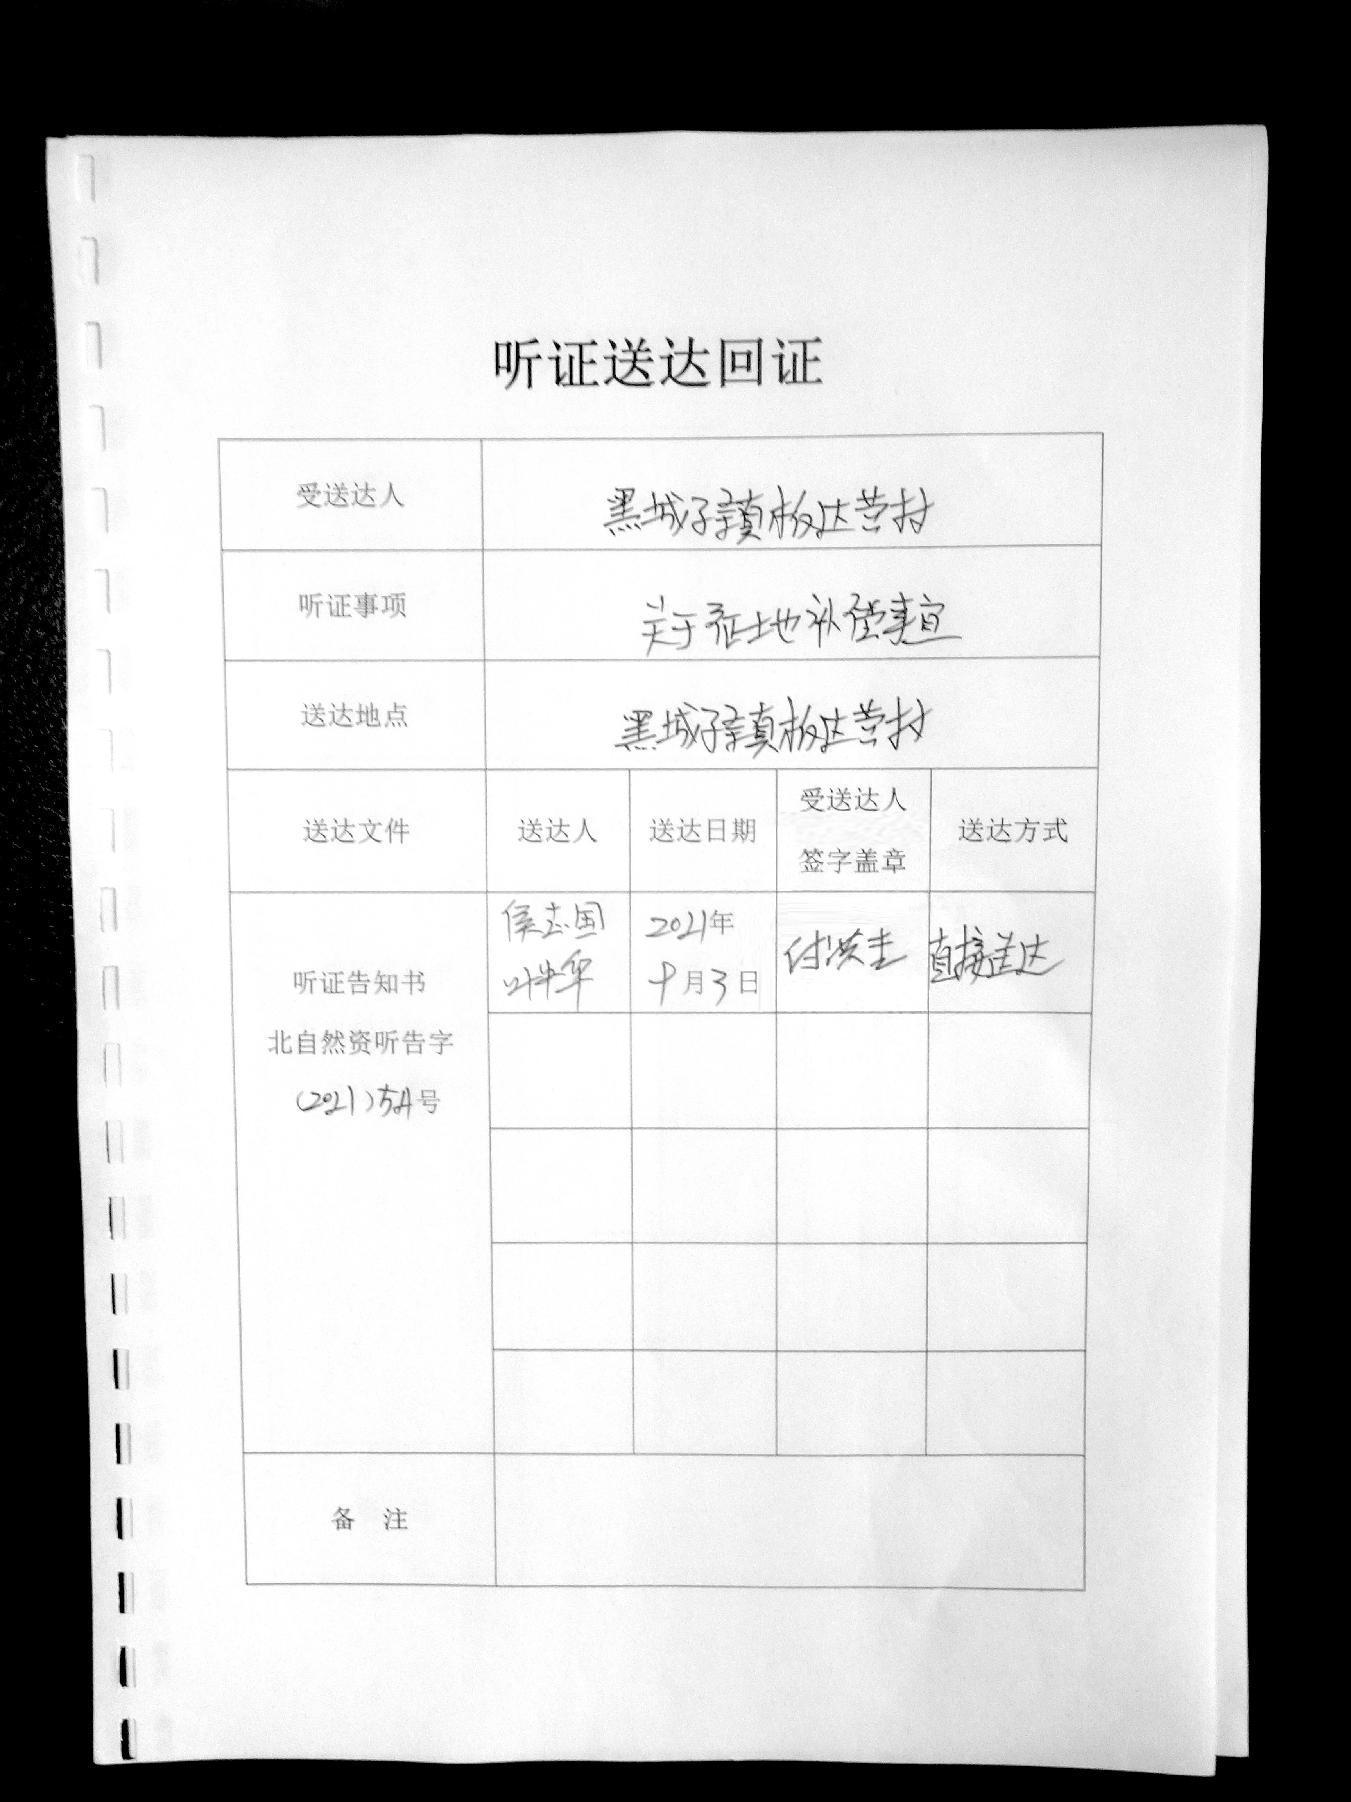 听证送达回证
受送达人
黑城子镇板达营村
听证事项
关于征土地补偿事宜
送达地点
黑城子镇板达营村
送达文件
送达人
送达日期
受送达人
签字盖章
送达方式
听证告知书
北自然资听告字
(2021)54号
侯志国
叶华
2021年
十月3日
付洪圭
直接送达
备 注